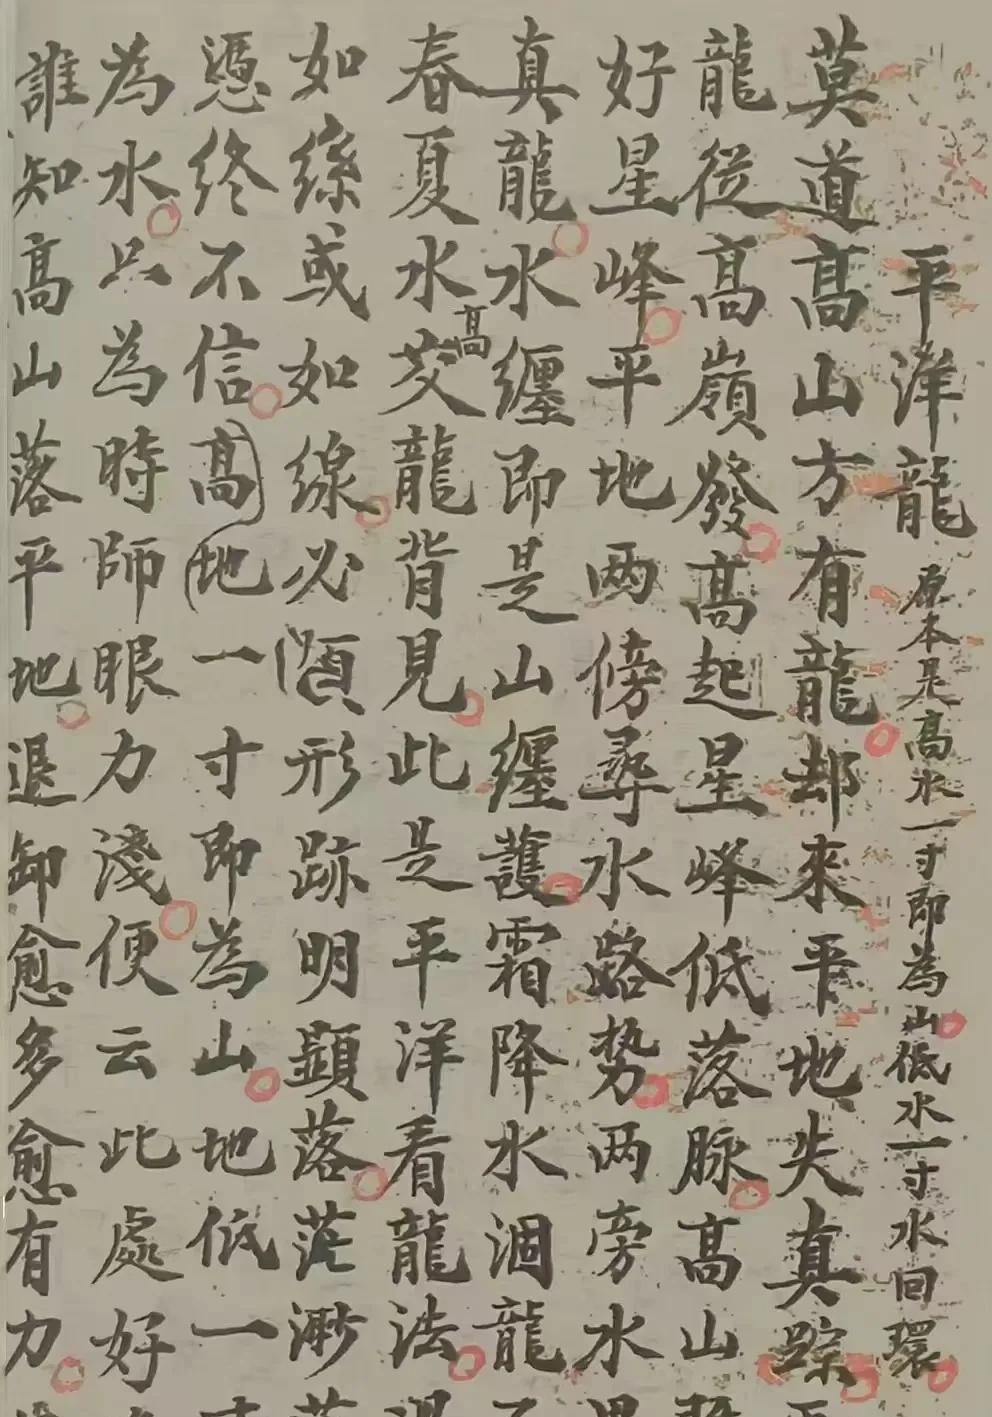 平洋龍 原本是高水一寸即為山低水一寸水回環
莫道高山方有龍却來平地失真踪
龍從高嶺發高起星峰低落脉高山
好星峰平地两傍尋水路势两旁水
真龍水纏即是山纏護霜降水涸龍
春夏水高龍背見此是平洋看龍法
如絲或如線必形跡明顯落茫渺
憑終不信高地一寸即為山地低一
為水只為時師眼力淺便云此處好
誰知高山落平地退卸愈多愈有力